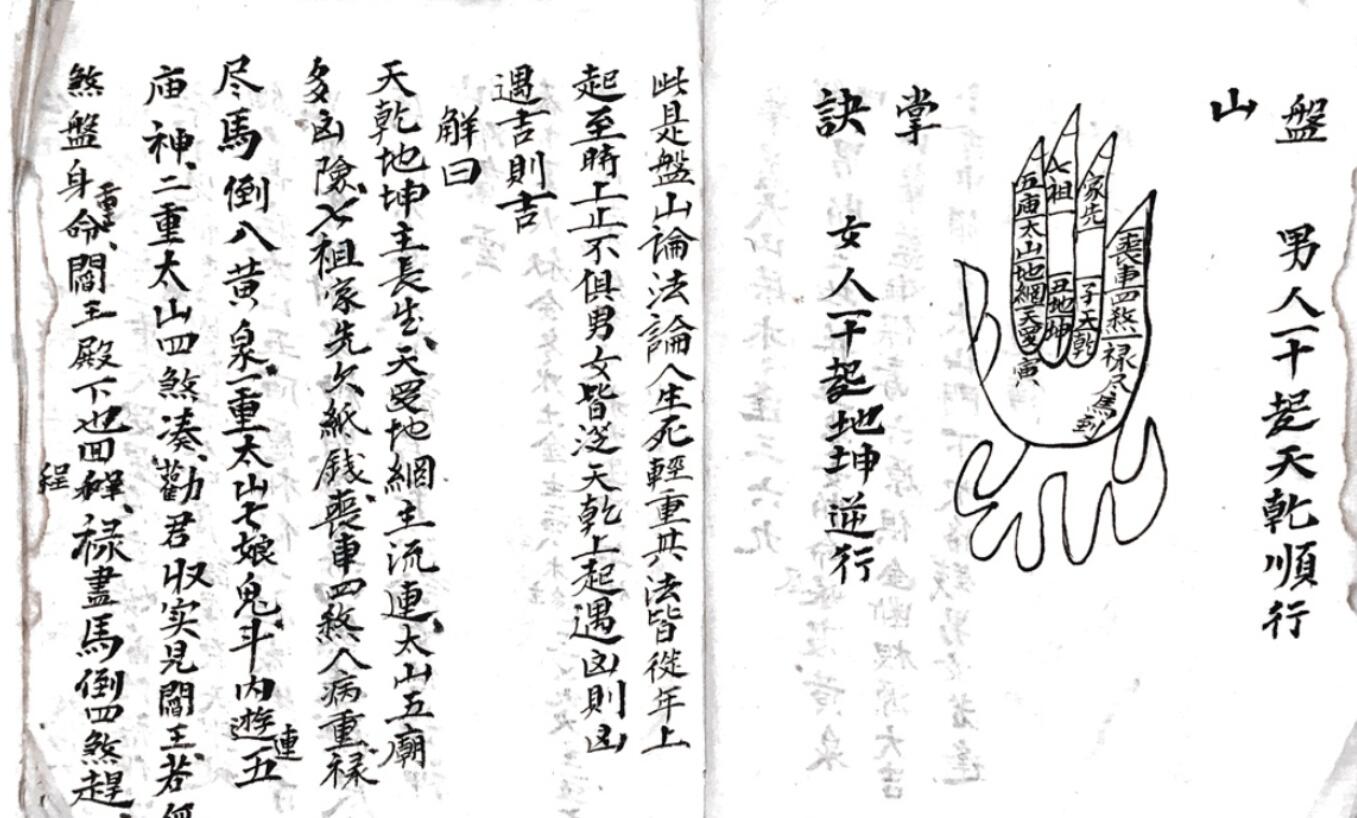 盤山掌訣
男人一十起天乾順行
女人一十起地坤逆行
喪車四煞
禄尽馬倒
家先
子天乾
七祖
丑地坤
五庙太山地網天罡
寅
此是盤山論法論人生死輕重其法皆從年上
起至時上止不俱男女皆從天乾上起遇凶則凶
遇吉則吉
解曰
天乾地坤主長生、天罡地網主流連、太山五廟
多凶險、七祖家先欠紙錢、喪車四煞人病重、禄
尽馬倒八黄泉、一重太山七娘鬼、斗内遊連五
庙神、二重太山四煞凑、勸君収实見閻王、若
煞盤身命重重、閻王殿下也回程、禄盡馬倒四煞趕、